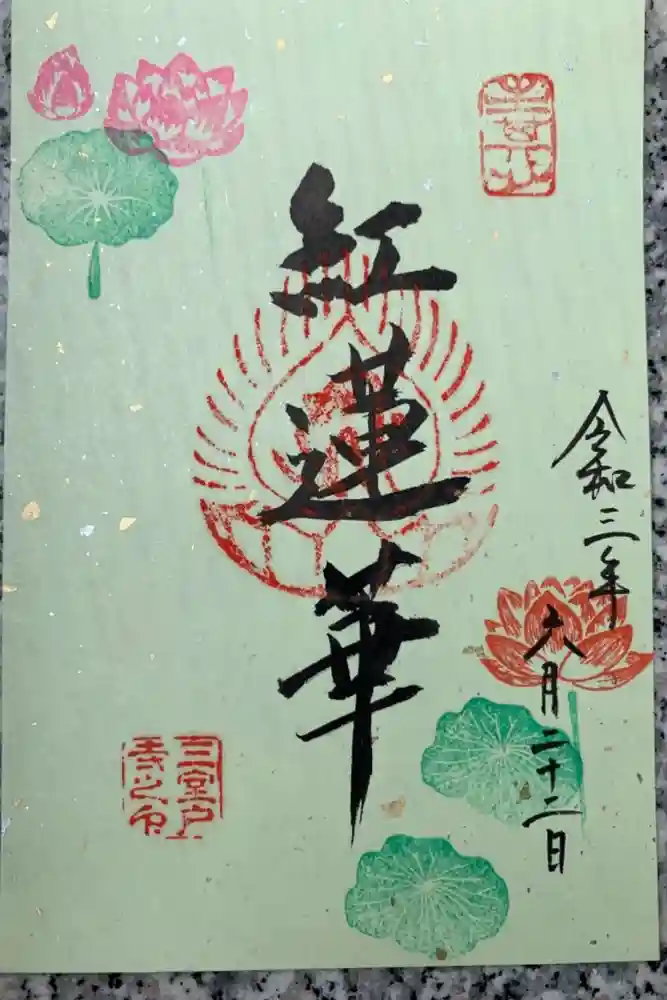 令和三年六月二十二日
紅蓮華
三室戸
寺之印